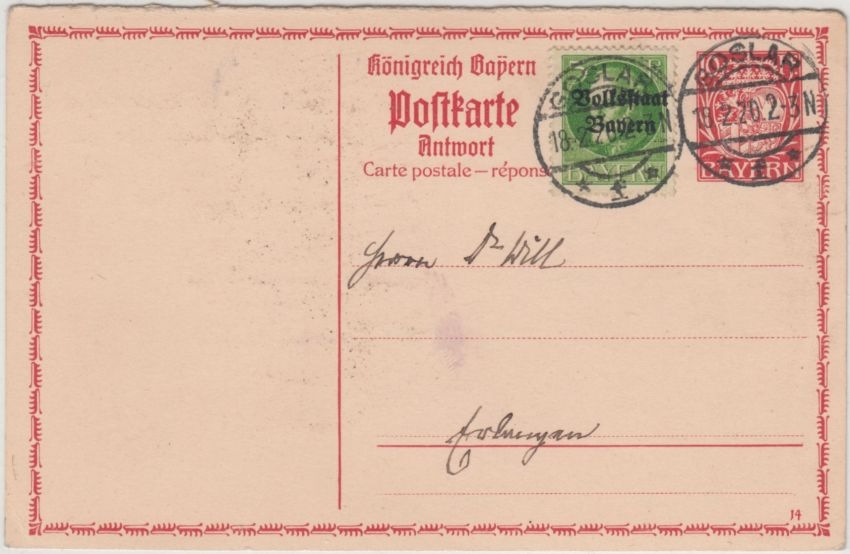 Königreich Bayern
Postkarte
Antwort
Carte postale – répons
Volksstaat
Bayern
BAYERN
GOSLAR
18.2.20.2-3N
GOSLAR
18.2.20.2-3N
BAYERN
Herrn Dr Will
Erlangen
14